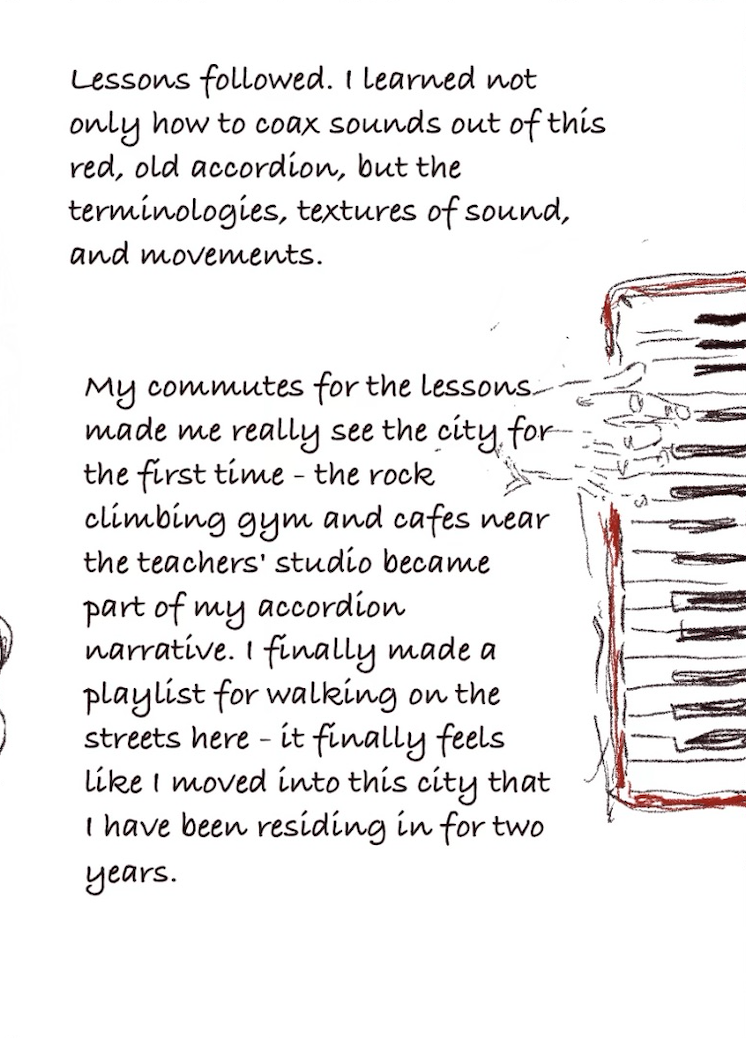 Lessons followed. I learned not
only how to coax sounds out of this
red, old accordion, but the
terminologies, textures of sound,
and movements.
My commutes for the lessons
made me really see the city for
the first time - the rock
climbing gym and cafes near
the teachers' studio became
part of my accordion
narrative. I finally made a
playlist for walking on the
streets here - it finally feels
like I moved into this city that
I have been residing in for two
years.